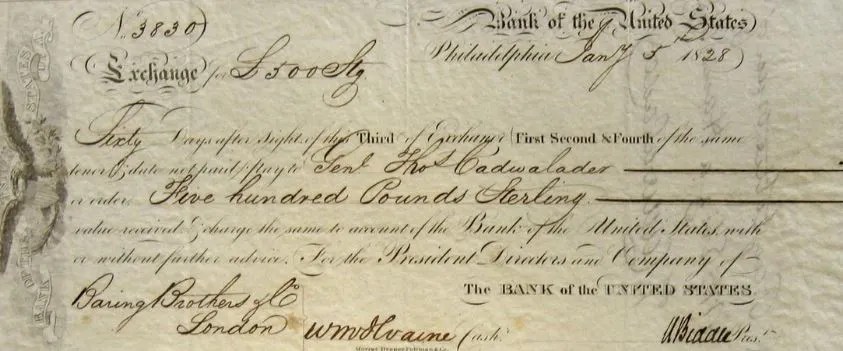 No. 3830
Bank of the United States
Exchange for £500 Stg.
Philadelphia Jany 5th 1828
Sixty Days after Sight of this Third of Exchange (First Second & Fourth of the same
tenor & date not paid) Pay to Genl. Thos. Cadwalader
or order Five hundred Pounds Sterling
value received & charge the same to account of the Bank of the United States, with
or without further advice. For the President Directors and Company of
The BANK of the UNITED STATES.
Baring Brothers & Co
London
W McIlvaine Cashr.
N Biddle Prest.
BANK OF THE
STATES